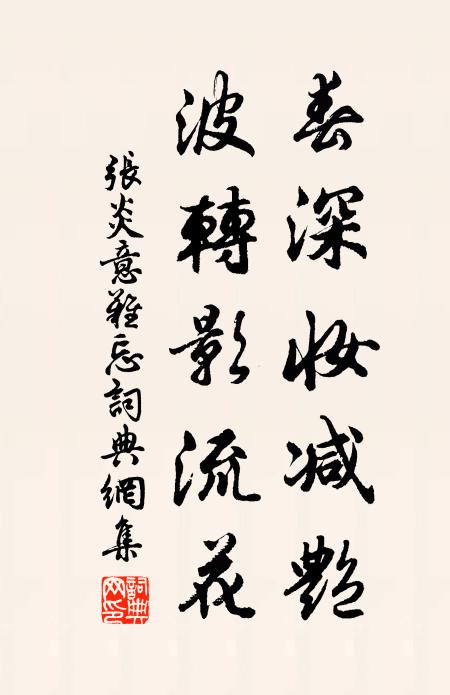 春深妆减艷
波轉影流花
張炎意難忘詞典網集
詞典網印